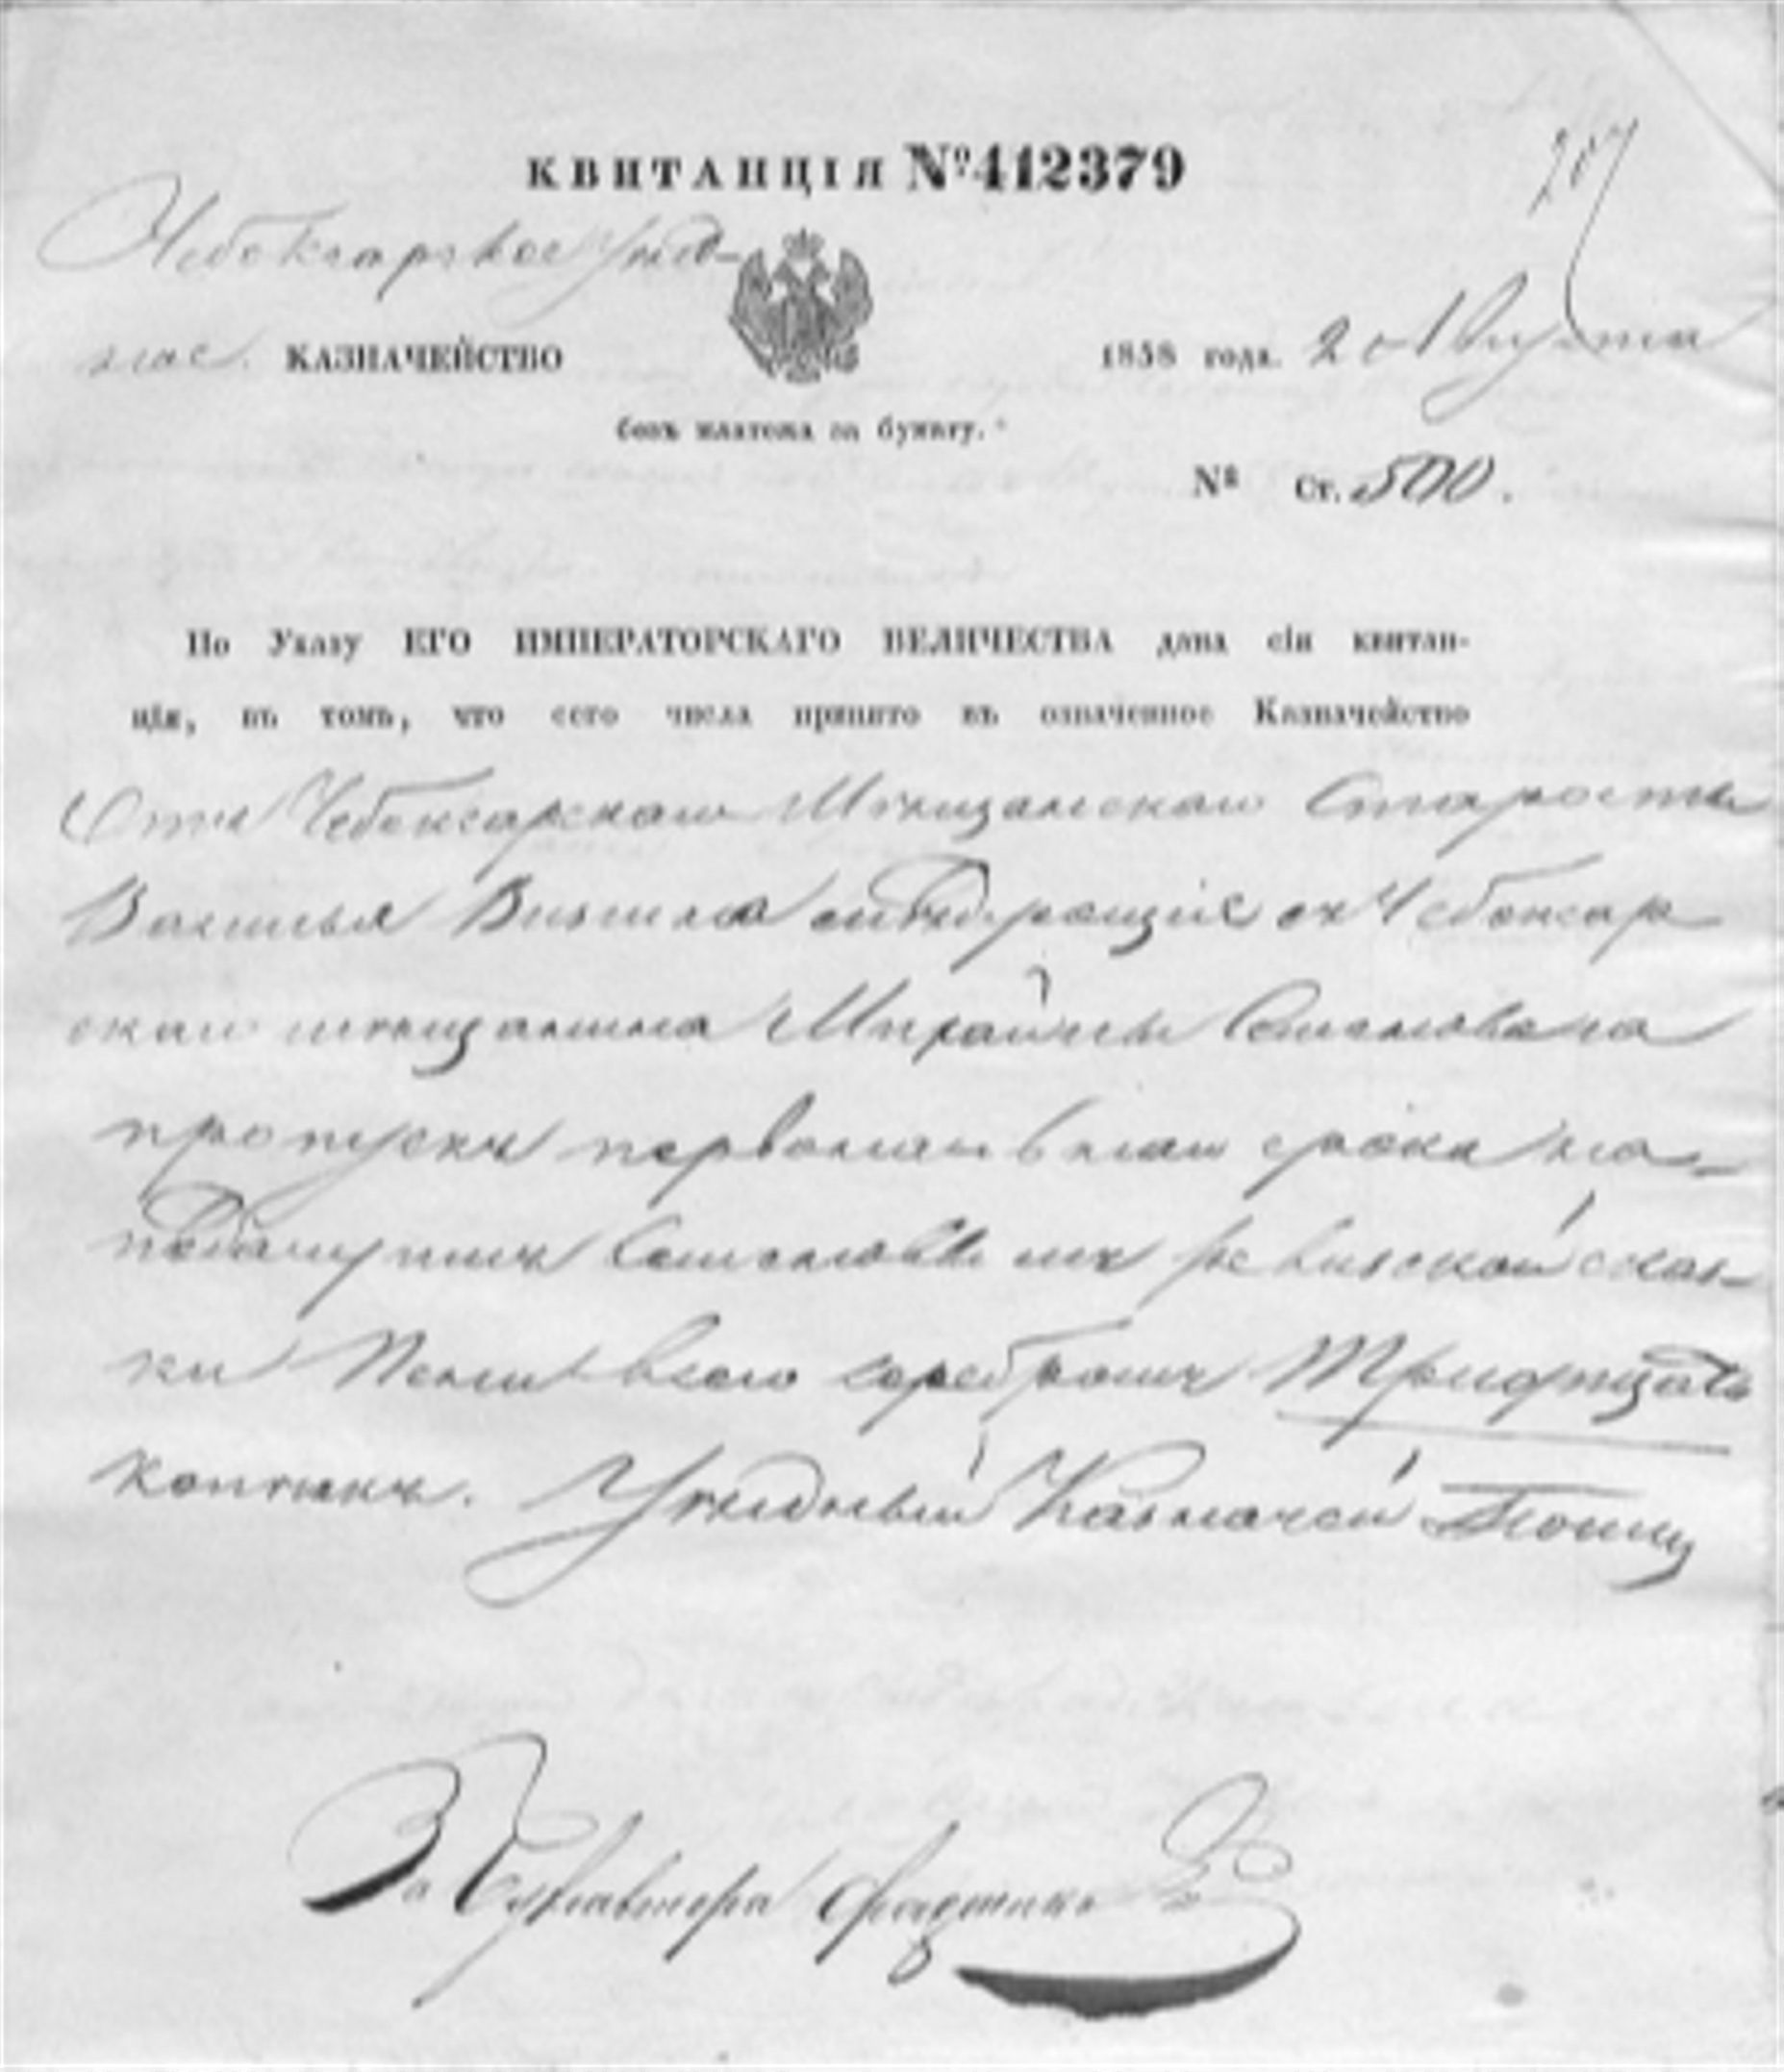 КВИТАНЦІЯ № 412379
207
Чебоксарское Уѣзд-
ное КАЗНАЧЕЙСТВО
1858 года. 20 Августа
безъ платежа за бумагу.
№ Ст. 500.
По Указу ЕГО ИМПЕРАТОРСКАГО ВЕЛИЧЕСТВА дана сія квитан-
ція, въ томъ, что сего числа принято въ означенное Казначейство
Отъ Чебоксарскаго Мѣщанскаго Старосты
Василья съ Чебоксар
скаго мѣщанина Михайлы Семенова за
пропускъ первоначальнаго срока на
Семеновымъ ревизской сказ-
ки Пени всего серебромъ Тридцать
копѣекъ. Уѣздный Казначей
За Бухгалтера